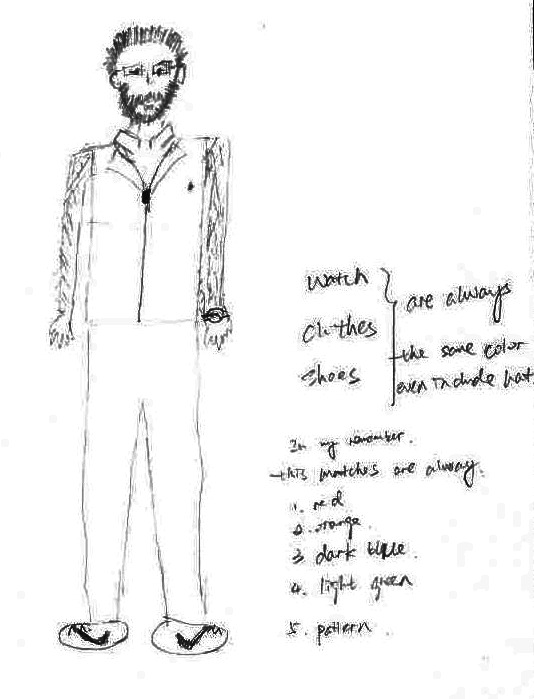 watch
clothes
shoes
are always
the same color
even include hat
In my remember.
this matches are always.
1. red
2. orange.
3 dark blue.
4. light green
5. pattern.